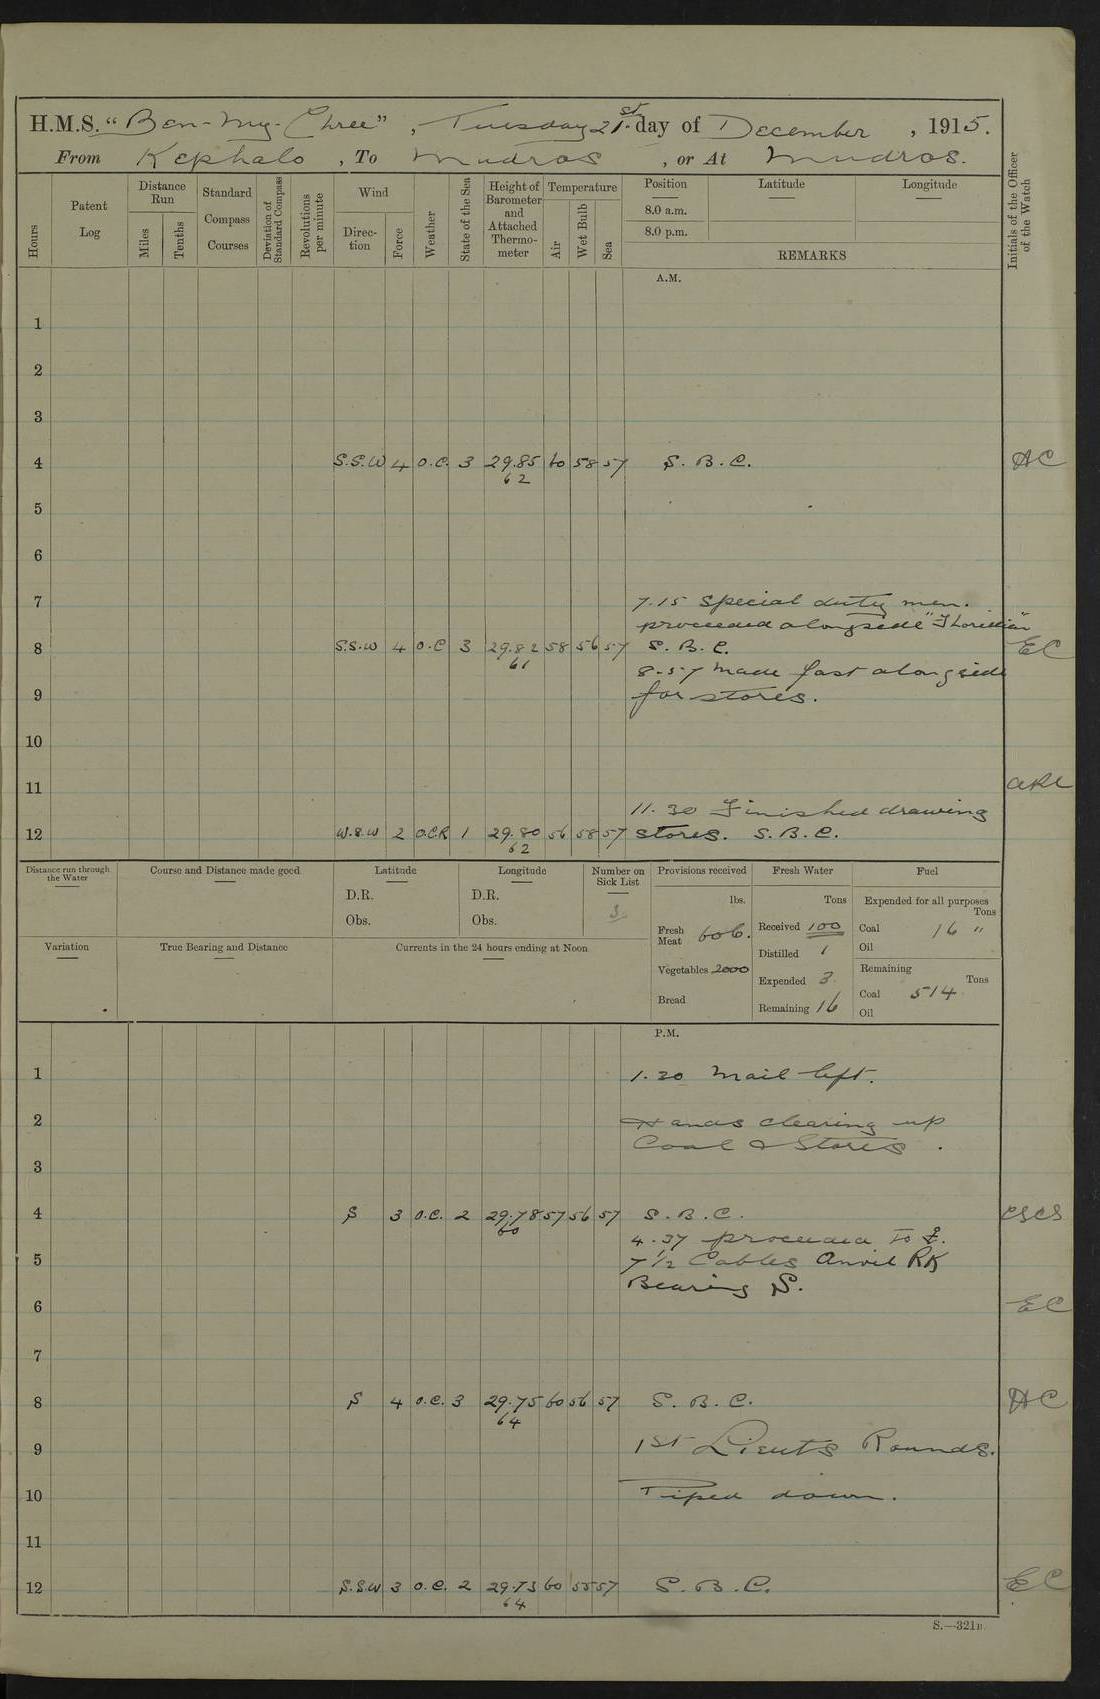 H.M.S. "Ben-My-Chree", Tuesday 21st day of December, 1915.
From Kephalo, To Mudros, or At Mudros.
Hours
Patent Log
Distance Run
Miles
Tenths
Standard Compass Courses
Deviation of Standard Compass
Revolutions per minute
Wind
Direction
Force
Weather
State of the Sea
Height of Barometer and Attached Thermometer
Temperature
Air
Wet Bulb
Sea
Position Latitude Longitude
8.0 a.m.
8.0 p.m.
REMARKS
Initials of the Officer of the Watch
A.M.
1
2
3
4 S.S.W 4 O.C. 3 29.85 60 58 57 S. B. C. AC
62
5
6
7 7.15 Special duty men.
proceeded alongside
8 S.S.W 4 O.C 3 29.82 58 56 57 S. B. C. EC
61
8-57 made fast alongside
9 for stores.
10
11
11.30 Finished drawing
12 W.S.W 2 O.C.R 1 29.80 56 58 57 stores. S. B. C.
62
Distance run through the Water
Course and Distance made good
Latitude
D.R.
Obs.
Longitude
D.R.
Obs.
Number on Sick List
3
Variation
True Bearing and Distance
Currents in the 24 hours ending at Noon
Provisions received
lbs.
Fresh Meat 606.
Vegetables 2000
Bread
Fresh Water
Tons
Received 100
Distilled 1
Expended 3
Remaining 16
Fuel
Expended for all purposes
Tons
Coal 16 "
Oil
Remaining
Tons
Coal 514
Oil
P.M.
1 1.30 Mail left.
2 Hands clearing up
Coal & Stores.
3
4 S 3 O.C. 2 29.78 57 56 57 S. B. C. CSCS
60
4.37 proceeded to ⚓.
5 7 1/2 Cables Anvil RK
Bearing S.
6 EC
7
8 S 4 O.C. 3 29.75 60 56 57 S. B. C. AC
64
9 1st Lieuts Rounds.
10 Piped down.
11
12 S.S.W 3 O.C. 2 29.73 60 55 57 S. B. C. EC
64
S.—321B.